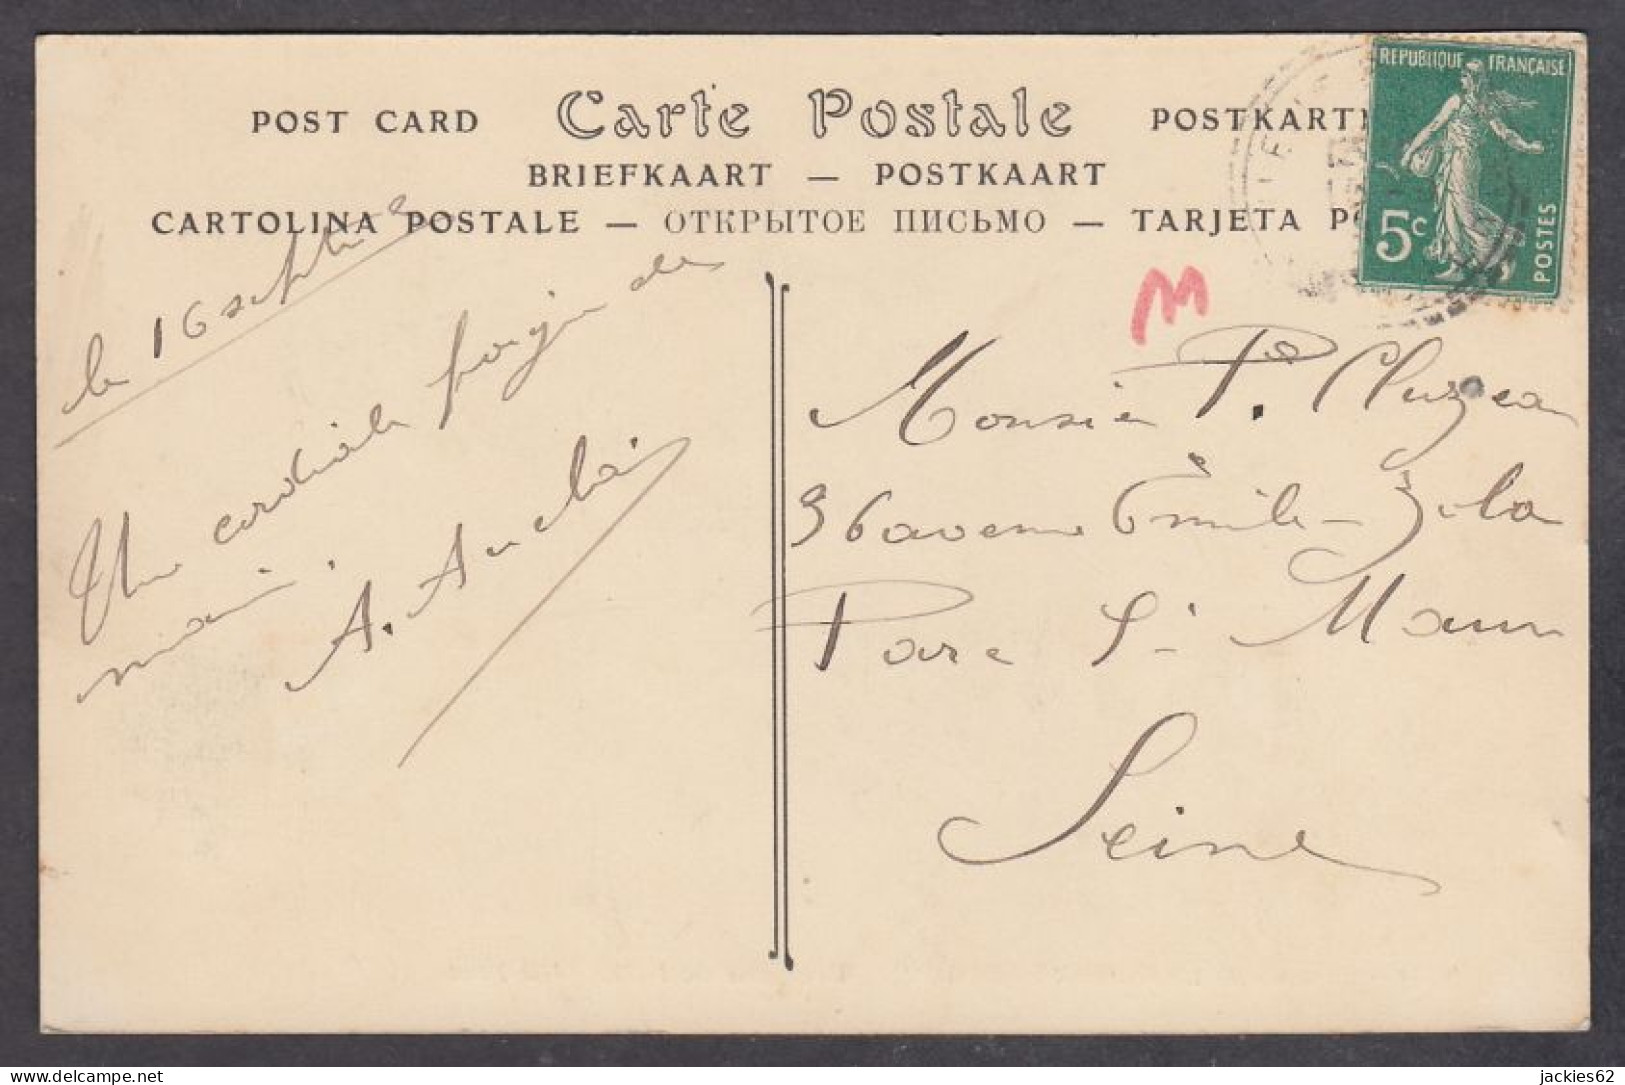 POST CARD Carte Postale POSTKART
BRIEFKAART — POSTKAART
CARTOLINA POSTALE — ОТКРЫТОЕ ПИСЬМО — TARJETA PO
REPUBLIQUE FRANÇAISE
5c
POSTES
M
le 16 septbre
Une cordiale poignée de
main.
Monsieur P. Cluzeau
36 avenue Émile-Zola
Parc St Maur
Seine
jackies62